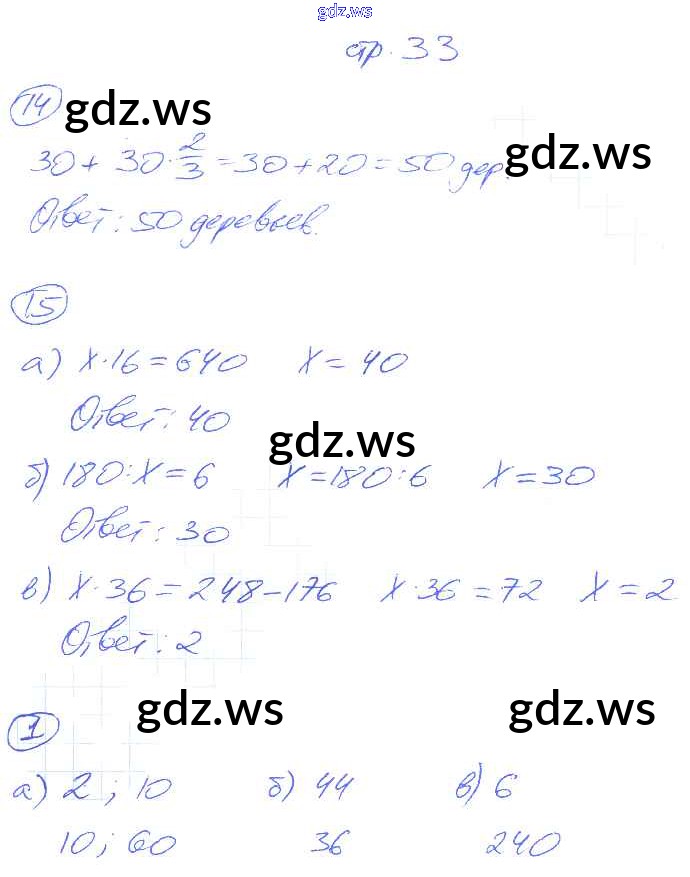 gdz.ws
стр. 33
14 gdz.ws
30 + 30 · 2/3 = 30 + 20 = 50 дер.
gdz.ws
Ответ: 50 деревьев.
15
а) x · 16 = 640 x = 40
Ответ: 40
gdz.ws
б) 180 : x = 6 x = 180 : 6 x = 30
Ответ: 30
в) x · 36 = 248 - 176 x · 36 = 72 x = 2
Ответ: 2
1 gdz.ws gdz.ws
а) 2 ; 10 б) 44 в) 6
10 ; 60 36 240